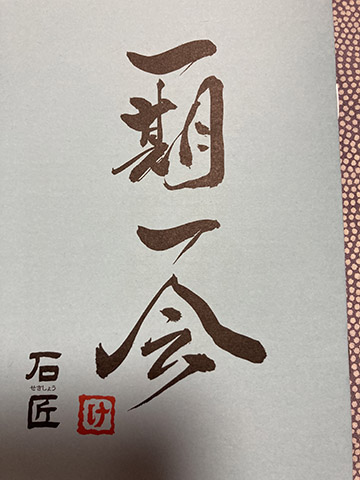 一期一会
石匠
せきしょう
け